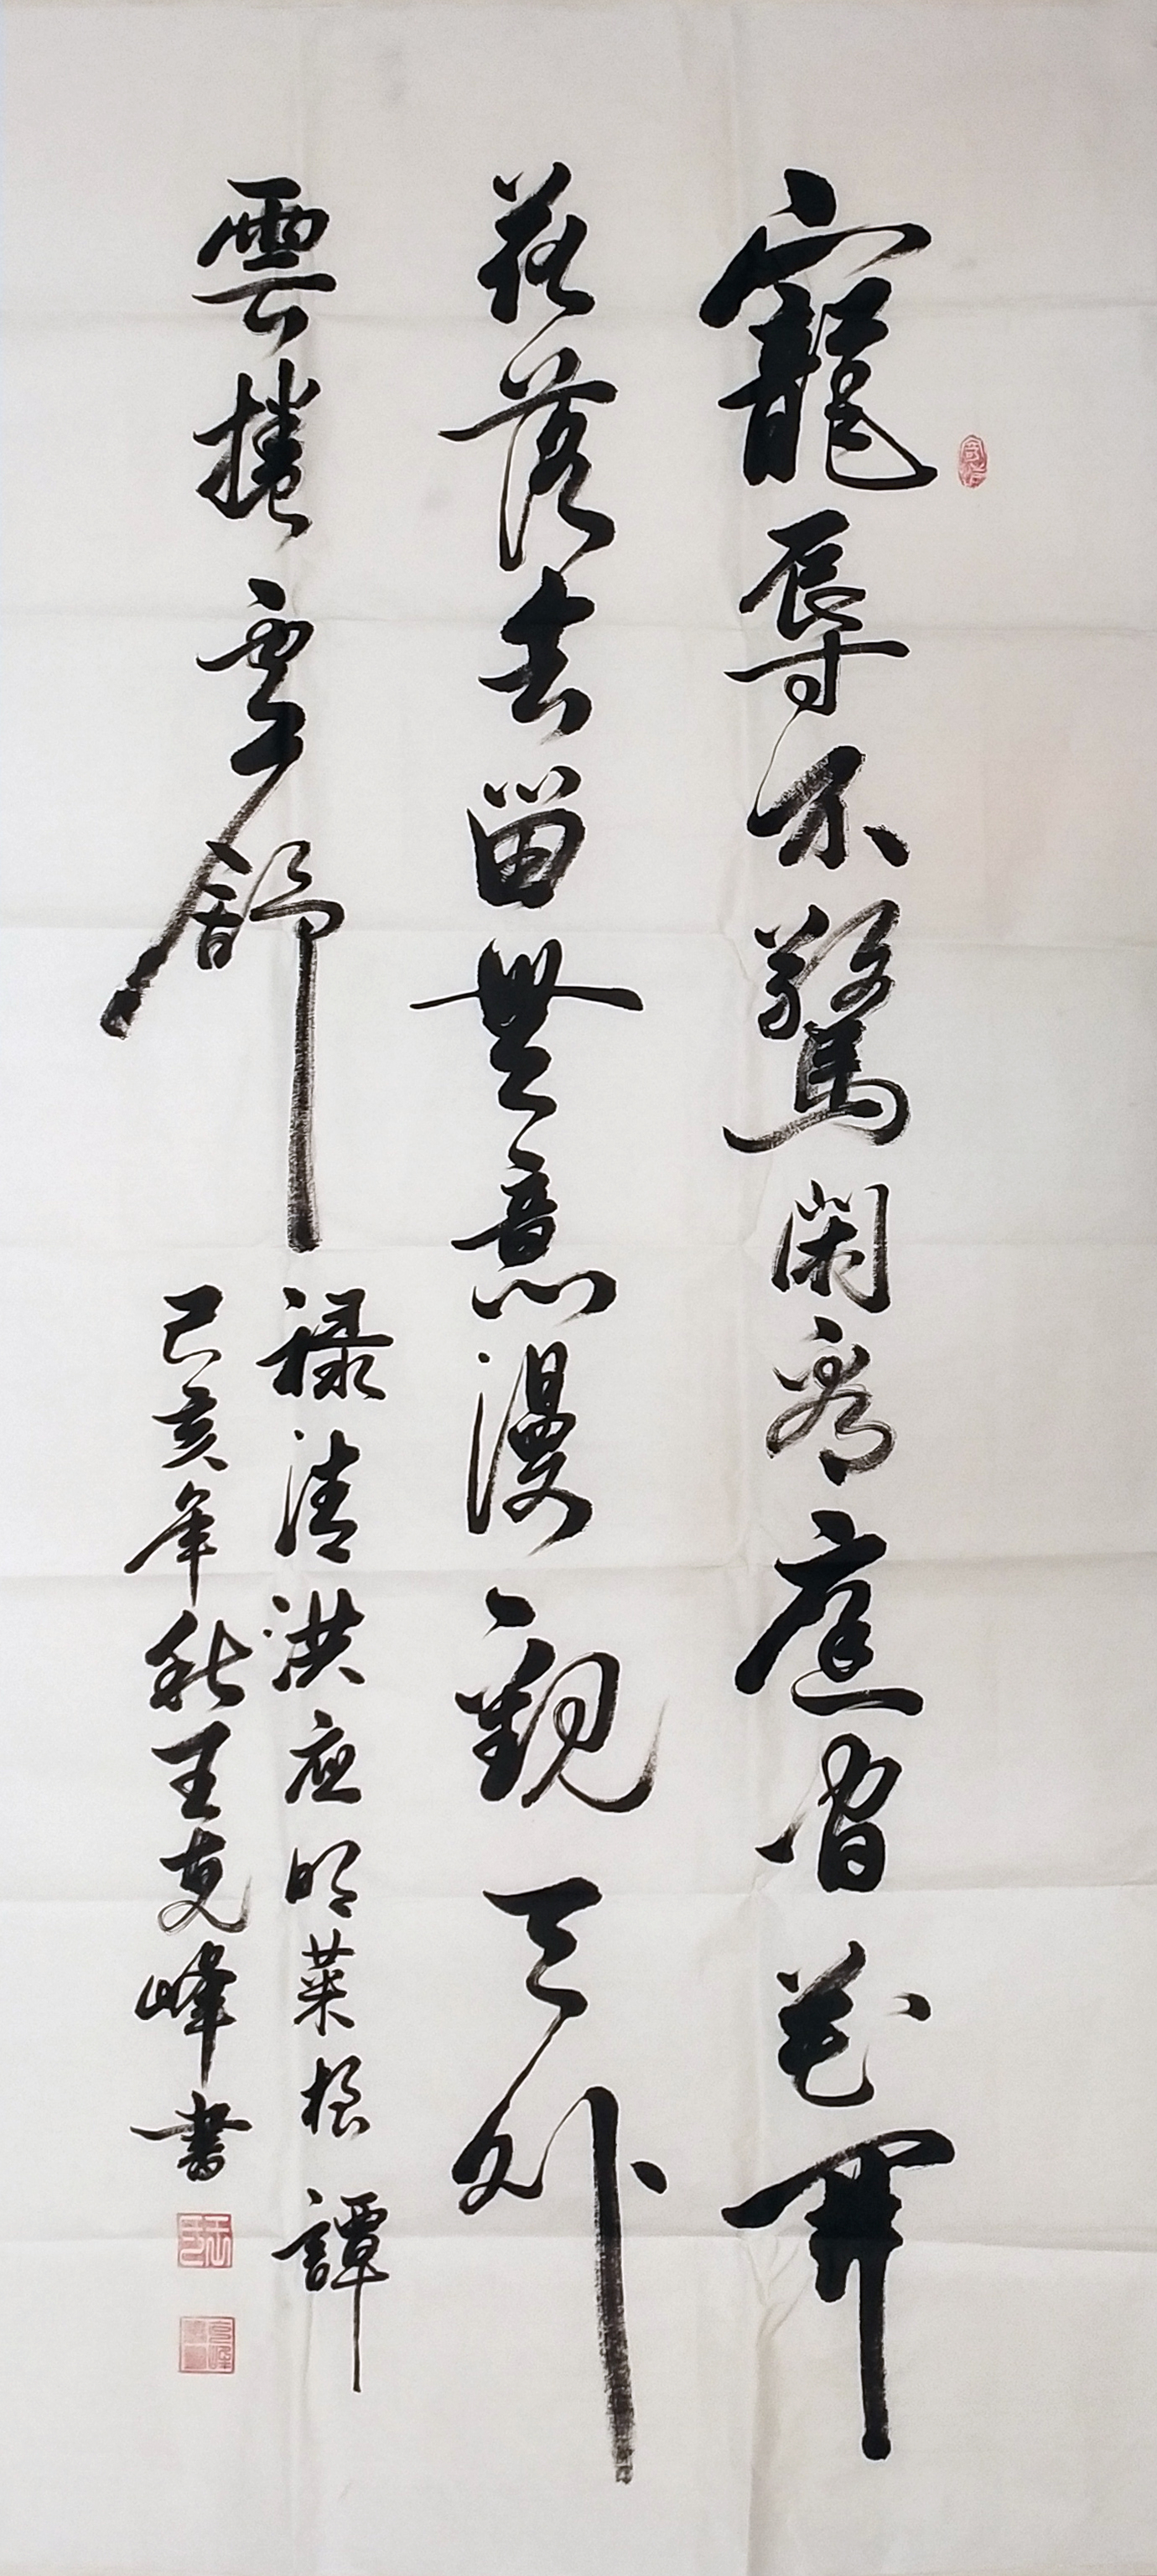 寵辱不驚閑看庭前花開
花落去留無意漫觀天外
雲捲雲舒
禄清洪应明菜根譚
己亥年秋王克峰書